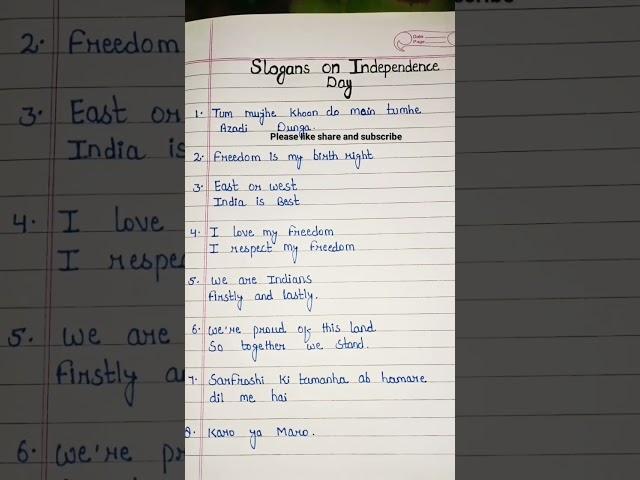 Date
Page
Slogans on Independence
Day
1. Tum mujhe khoon do main tumhe
Azadi Dunga.
Please like share and subscribe
2. Freedom is my birth right
3. East or west
India is Best
4. I love my freedom
I respect my freedom
5. We are Indians
firstly and lastly.
6. We're proud of this land
So together we stand.
7. Sarfroshi ki tamanha ab hamare
dil me hai
8. Karo ya Maro.
2. Freedom
3. East or
India is
4. I love
I respec
5. We are
firstly a
6. We're pr